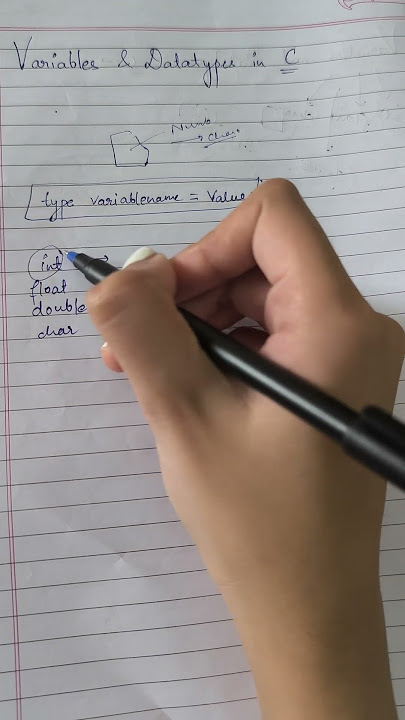 Variables & Datatypes in C
type variablename = Value
int →
float
double
char